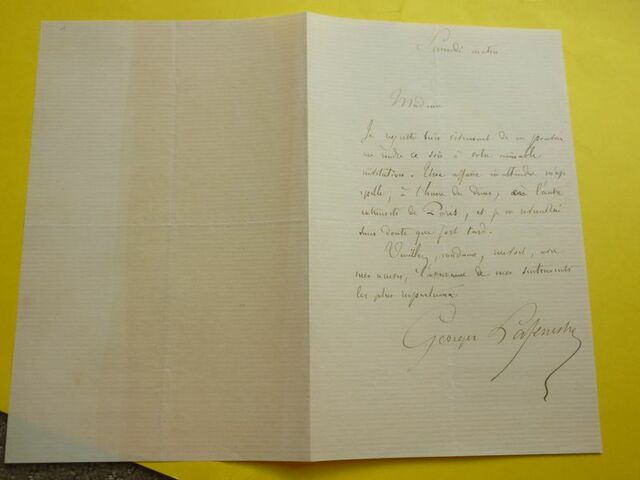 Samedi matin
Madame
Je regrette bien vivement de ne pouvoir
me rendre ce soir à votre aimable
invitation. Une affaire inattendue m'ap-
pelle, à l'heure du dîner, à l'autre
extrémité de Paris, et je n'en reviendrai
sans doute que fort tard.
Veuillez, madame, recevoir, avec
mes excuses, l'assurance de mes sentiments
les plus respectueux
Georges Lafenestre